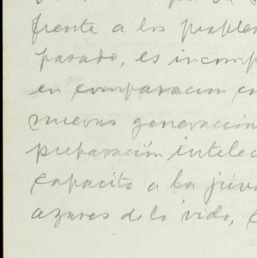 frente a los proble
pasado, es incomp
en comparacion co
nuevas generacion
preparación intelec
capacita a la juv
azares de la vida, e